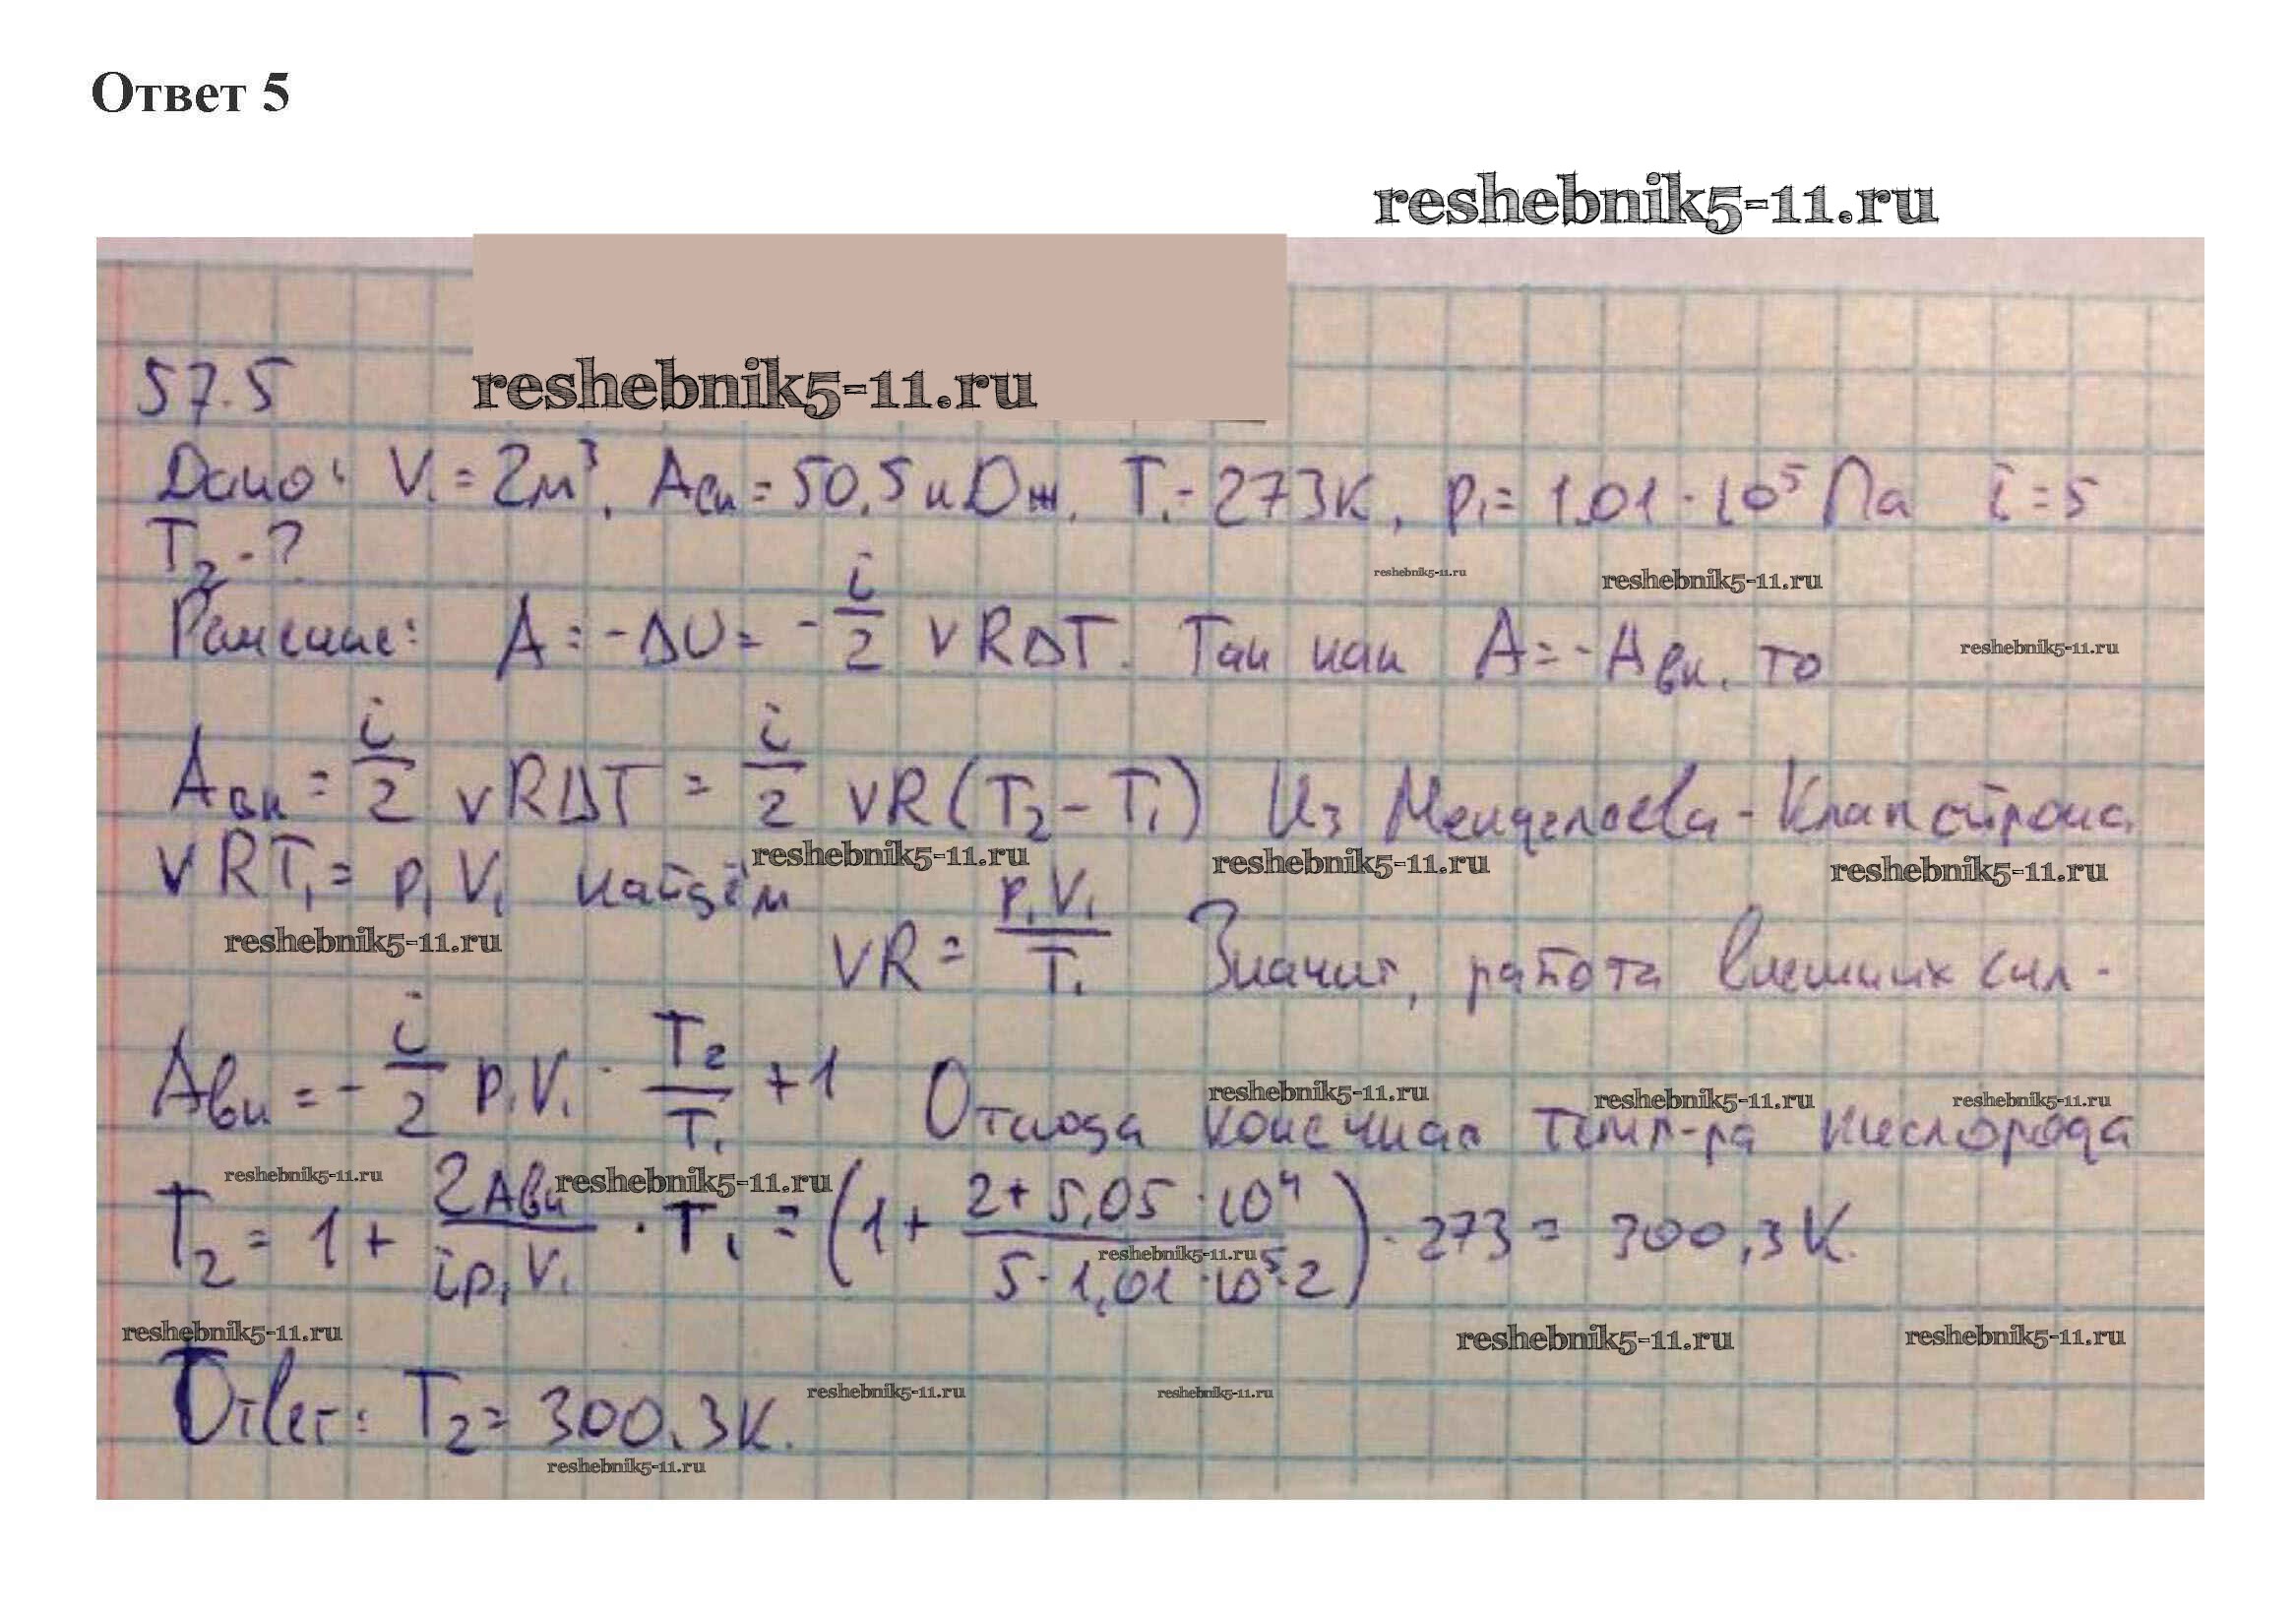 Ответ 5
reshebnik5-11.ru
57.5
reshebnik5-11.ru
Дано: V₁ = 2м³, Aвн = 50,5 кДж, T₁ = 273К, p₁ = 1,01 · 10⁵ Па i = 5
T₂ - ?
reshebnik5-11.ru reshebnik5-11.ru
Решение: A = -ΔU = - i/2 νRΔT. Так как A = -Aвн, то
reshebnik5-11.ru
Aвн = i/2 νRΔT = i/2 νR(T₂ - T₁) Из Менделеева-Клапейрона
reshebnik5-11.ru reshebnik5-11.ru reshebnik5-11.ru
νRT₁ = p₁V₁ найдём
reshebnik5-11.ru
νR = p₁V₁/T₁ Значит, работа внешних сил -
Aвн = - i/2 p₁V₁ · T₂/T₁ + 1 Отсюда конечная темп-ра кислорода
reshebnik5-11.ru reshebnik5-11.ru reshebnik5-11.ru
reshebnik5-11.ru reshebnik5-11.ru
T₂ = 1 + 2Aвн/ip₁V₁ · T₁ = (1 + 2+5,05·10⁴/5·1,01·10⁵·2) · 273 = 300,3 К.
reshebnik5-11.ru
reshebnik5-11.ru reshebnik5-11.ru reshebnik5-11.ru
Ответ: T₂ = 300,3К.
reshebnik5-11.ru reshebnik5-11.ru
reshebnik5-11.ru